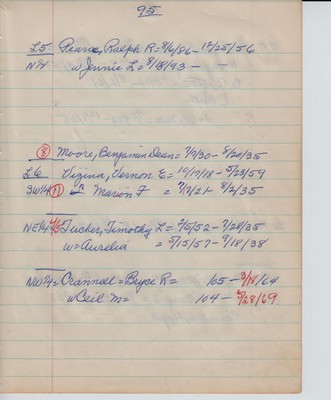 95
L5 Pearce, Ralph R= 8/6/86 - 12/25/56
N1/2 w Jennie L= 8/18/93 - -
8 Moore, Benjamin Dean= 7/9/30 - 8/20/35
L6 Vizina, Vernon E= 10/19/18 - 5/23/59
SW1/4 11 " Marion F = 7/9/21 - 8/2/35
NE1/4 Tucker, Timothy L= 2/5/52 - 7/28/35
w=Aurelia = 5/15/57 - 9/18/38
NW1/4= Crannell= Bryce R= 105 - 3/19/64
w Ceil M= 104 - 6/28/69